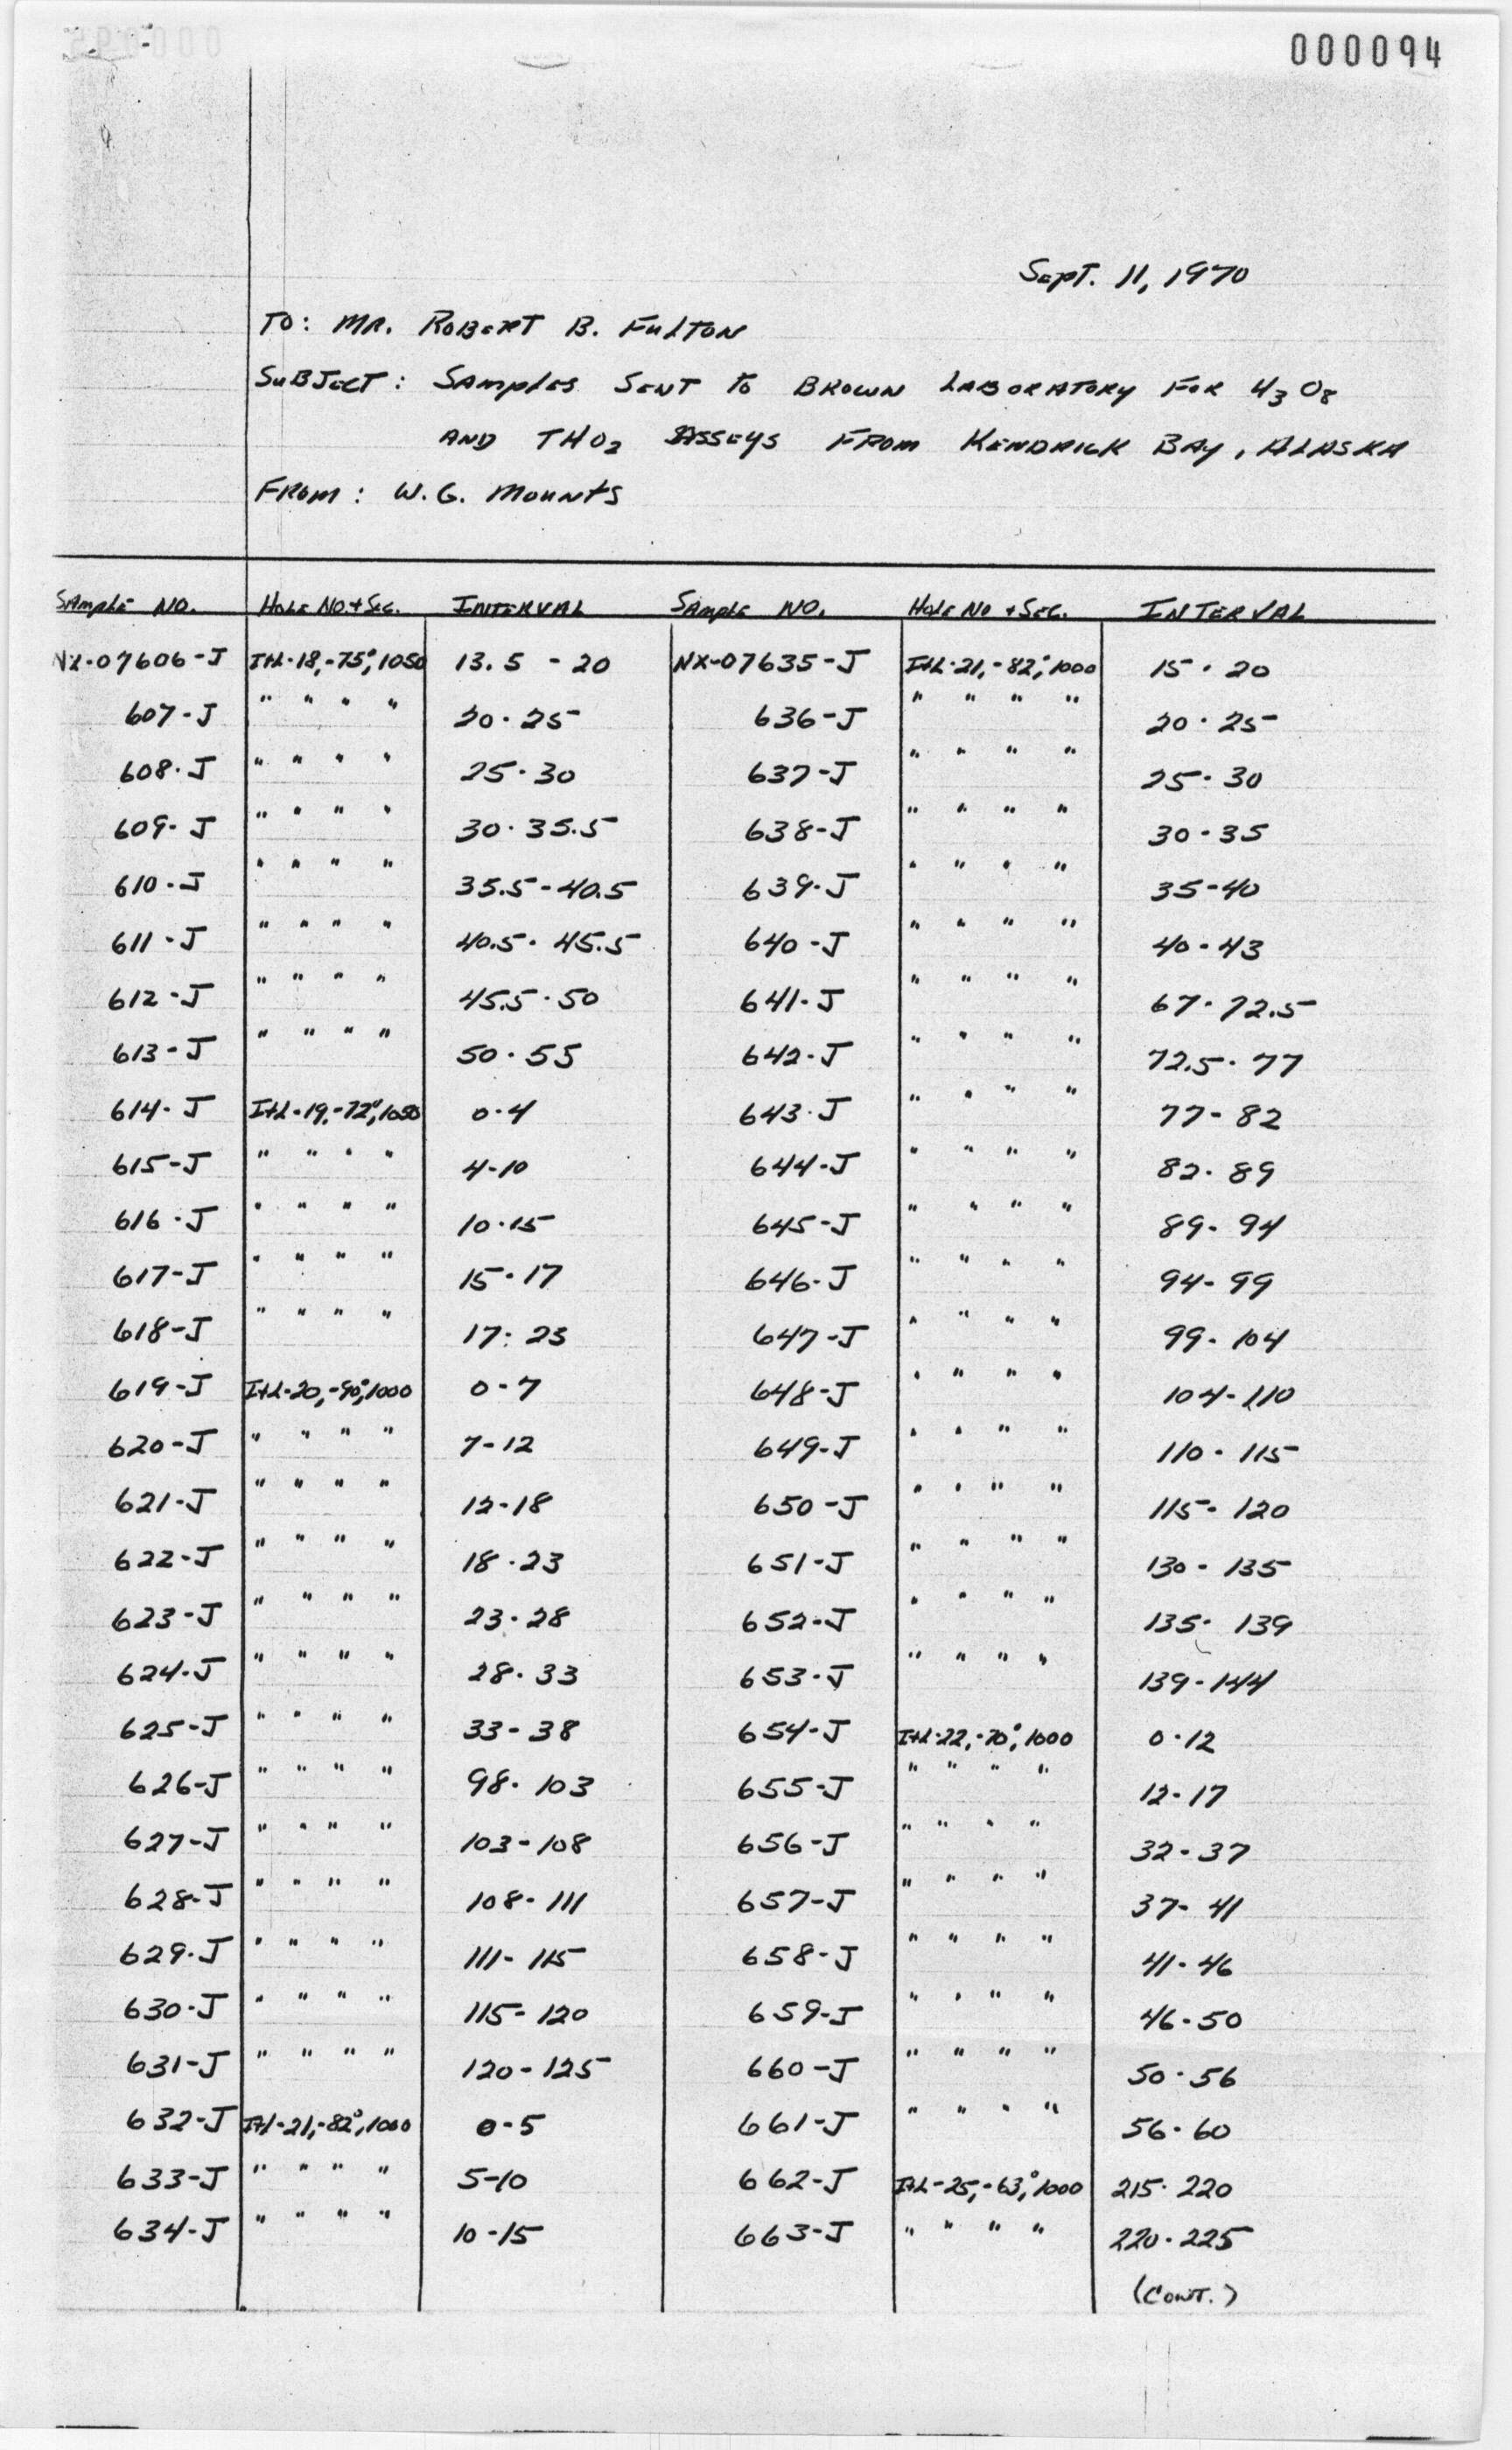 000094
Sept. 11, 1970
To: Mr. Robert B. Fulton
Subject: Samples Sent to Brown Laboratory For U3O8
and ThO2 Asseys From Kendrick Bay, Alaska
From: W.G. Mounts
Sample No. Hole No. + Sec. Interval Sample No. Hole No + Sec. Interval
NX-07606-J I+L-18,-75°,1050 13.5 - 20 NX-07635-J I+L-21,-82°,1000 15-20
607-J " " " " 20-25 636-J " " " " 20-25
608-J " " " " 25-30 637-J " " " " 25-30
609-J " " " " 30-35.5 638-J " " " " 30-35
610-J " " " " 35.5-40.5 639-J " " " " 35-40
611-J " " " " 40.5-45.5 640-J " " " " 40-43
612-J " " " " 45.5-50 641-J " " " " 67-72.5
613-J " " " " 50-55 642-J " " " " 72.5-77
614-J I+L-19,-72°,1050 0-4 643-J " " " " 77-82
615-J " " " " 4-10 644-J " " " " 82-89
616-J " " " " 10-15 645-J " " " " 89-94
617-J " " " " 15-17 646-J " " " " 94-99
618-J " " " " 17-23 647-J " " " " 99-104
619-J I+L-20,-90°,1000 0-7 648-J " " " " 104-110
620-J " " " " 7-12 649-J " " " " 110-115
621-J " " " " 12-18 650-J " " " " 115-120
622-J " " " " 18-23 651-J " " " " 130-135
623-J " " " " 23-28 652-J " " " " 135-139
624-J " " " " 28-33 653-J " " " " 139-144
625-J " " " " 33-38 654-J I+L-22,-70°,1000 0-12
626-J " " " " 98-103 655-J " " " " 12-17
627-J " " " " 103-108 656-J " " " " 32-37
628-J " " " " 108-111 657-J " " " " 37-41
629-J " " " " 111-115 658-J " " " " 41-46
630-J " " " " 115-120 659-J " " " " 46-50
631-J " " " " 120-125 660-J " " " " 50-56
632-J I+L-21,-82°,1000 0-5 661-J " " " " 56-60
633-J " " " " 5-10 662-J I+L-25,-63°,1000 215-220
634-J " " " " 10-15 663-J " " " " 220-225
(Cont.)